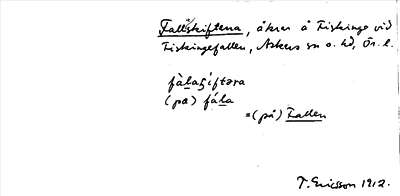 Fallskiftena, åkrar å Fiskinge vid
Fiskingefallen, Askers sn o. hd, Ör. l.
(pa) fála
=(på) Fallen
T. Ericsson 1912.